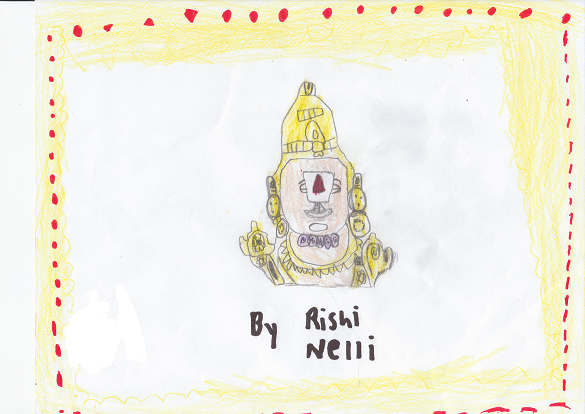 By Rishi
Nelli